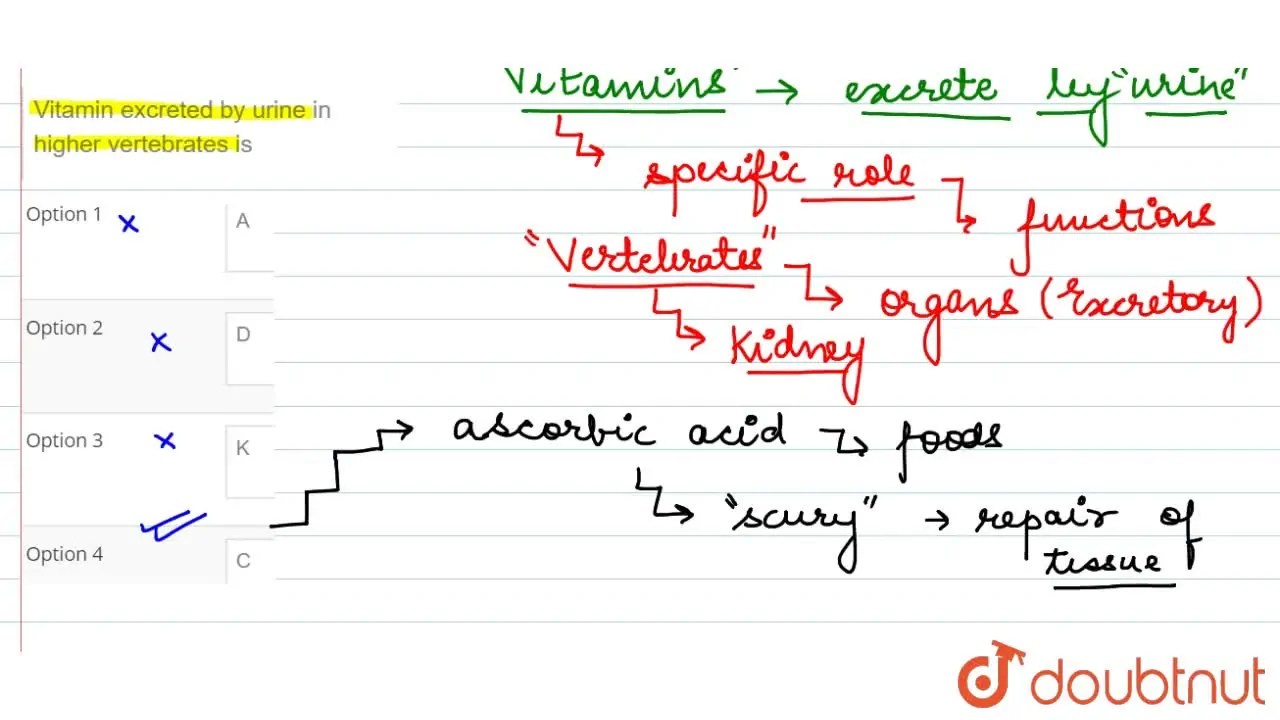 Vitamin excreted by urine in
higher vertebrates is
Option 1 A
Option 2 D
Option 3 K
Option 4 C
Vitamins → excrete by "urine"
specific role
functions
"Vertebrates"
organs (Excretory)
Kidney
ascorbic acid foods
"scury" → repair of
tissue
doubtnut